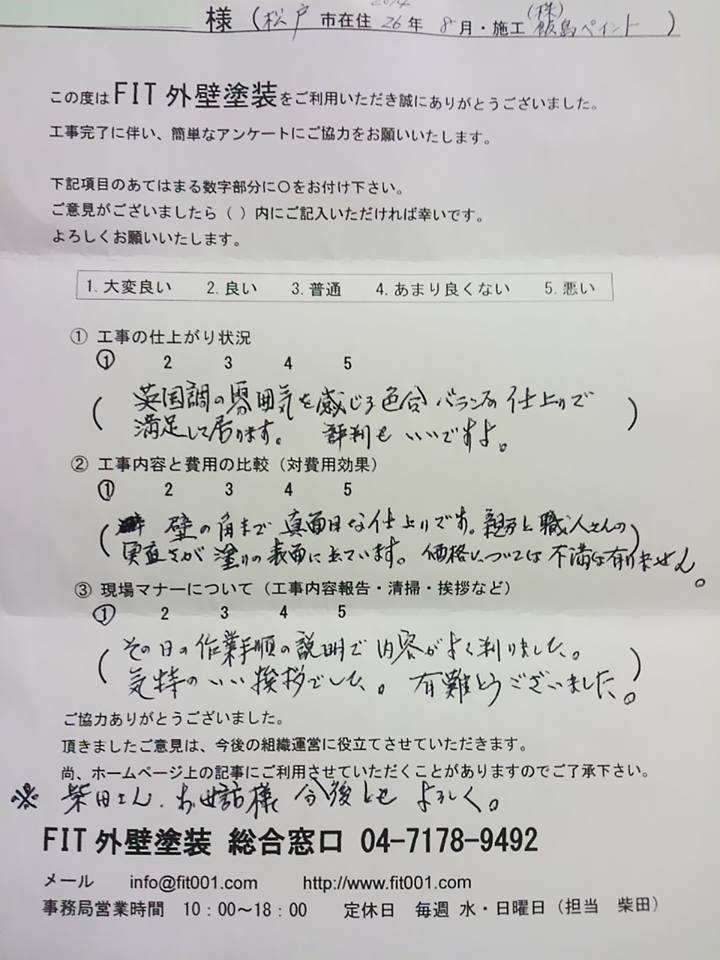 2014
様（松戸市在住 26年 8月・施工 (株)飯島ペイント ）
この度はFIT外壁塗装をご利用いただき誠にありがとうございました。
工事完了に伴い、簡単なアンケートにご協力をお願いいたします。
下記項目のあてはまる数字部分に〇をお付け下さい。
ご意見がございましたら（ ）内にご記入いただければ幸いです。
よろしくお願いいたします。
1.大変良い 2.良い 3.普通 4.あまり良くない 5.悪い
① 工事の仕上がり状況
1 2 3 4 5
（英国調の雰囲気を感じる色合 バランスの仕上りで
満足して居ります。 評判も いいですよ。）
② 工事内容と費用の比較（対費用効果）
1 2 3 4 5
（壁の角まで 真面目な仕上りです。親方と職人さんの
実直さが塗りの表面に出ています。価格については不満は有りません。）
③ 現場マナーについて（工事内容報告・清掃・挨拶など）
1 2 3 4 5
（その日の作業手順の説明で 内容がよく判りました。
気持のいい挨拶でした。 有難とうございました。）
ご協力ありがとうございました。
頂きましたご意見は、今後の組織運営に役立てさせていただきます。
尚、ホームページ上の記事にご利用させていただくことがありますのでご了承下さい。
※ 柴田さん、お世話様 今後とも よろしく。
FIT外壁塗装 総合窓口 04-7178-9492
メール info@fit001.com http://www.fit001.com
事務局営業時間 10：00～18：00 定休日 毎週 水・日曜日（担当 柴田）